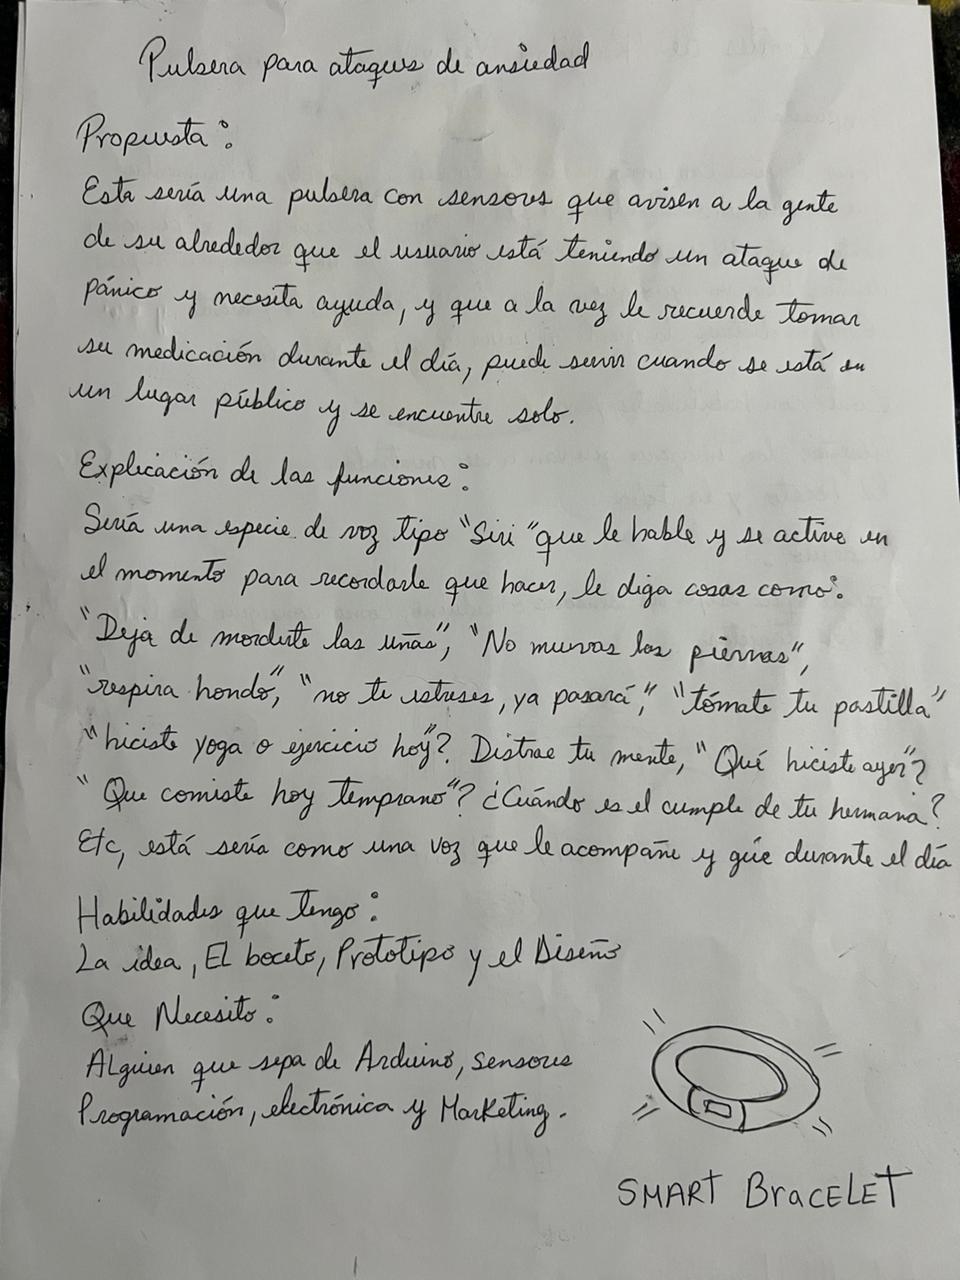 Pulsera para ataques de ansiedad
Propuesta:
Esta sería una pulsera con sensores que avisen a la gente
de su alrededor que el usuario está teniendo un ataque de
pánico y necesita ayuda, y que a la vez le recuerde tomar
su medicación durante el día, puede servir cuando se está en
un lugar público y se encuentre solo.
Explicación de las funciones:
Sería una especie de voz tipo "Siri" que le hable y se active en
el momento para recordarle que hacer, le diga cosas como:
"Deja de morderte las uñas", "No muevas las piernas",
"respira hondo", "no te estreses, ya pasará", "tómate tu pastilla"
"hiciste yoga o ejercicio hoy"? Distrae tu mente, "Qué hiciste ayer"?
"Que comiste hoy temprano"? ¿Cuándo es el cumple de tu hermana?
Etc, está sería como una voz que le acompañe y gúie durante el día
Habilidades que tengo:
La idea, El boceto, Prototipo y el Diseño
Que Necesito:
Alguien que sepa de Arduino, sensores
Programación, electrónica y Marketing.
SMART BraceLET